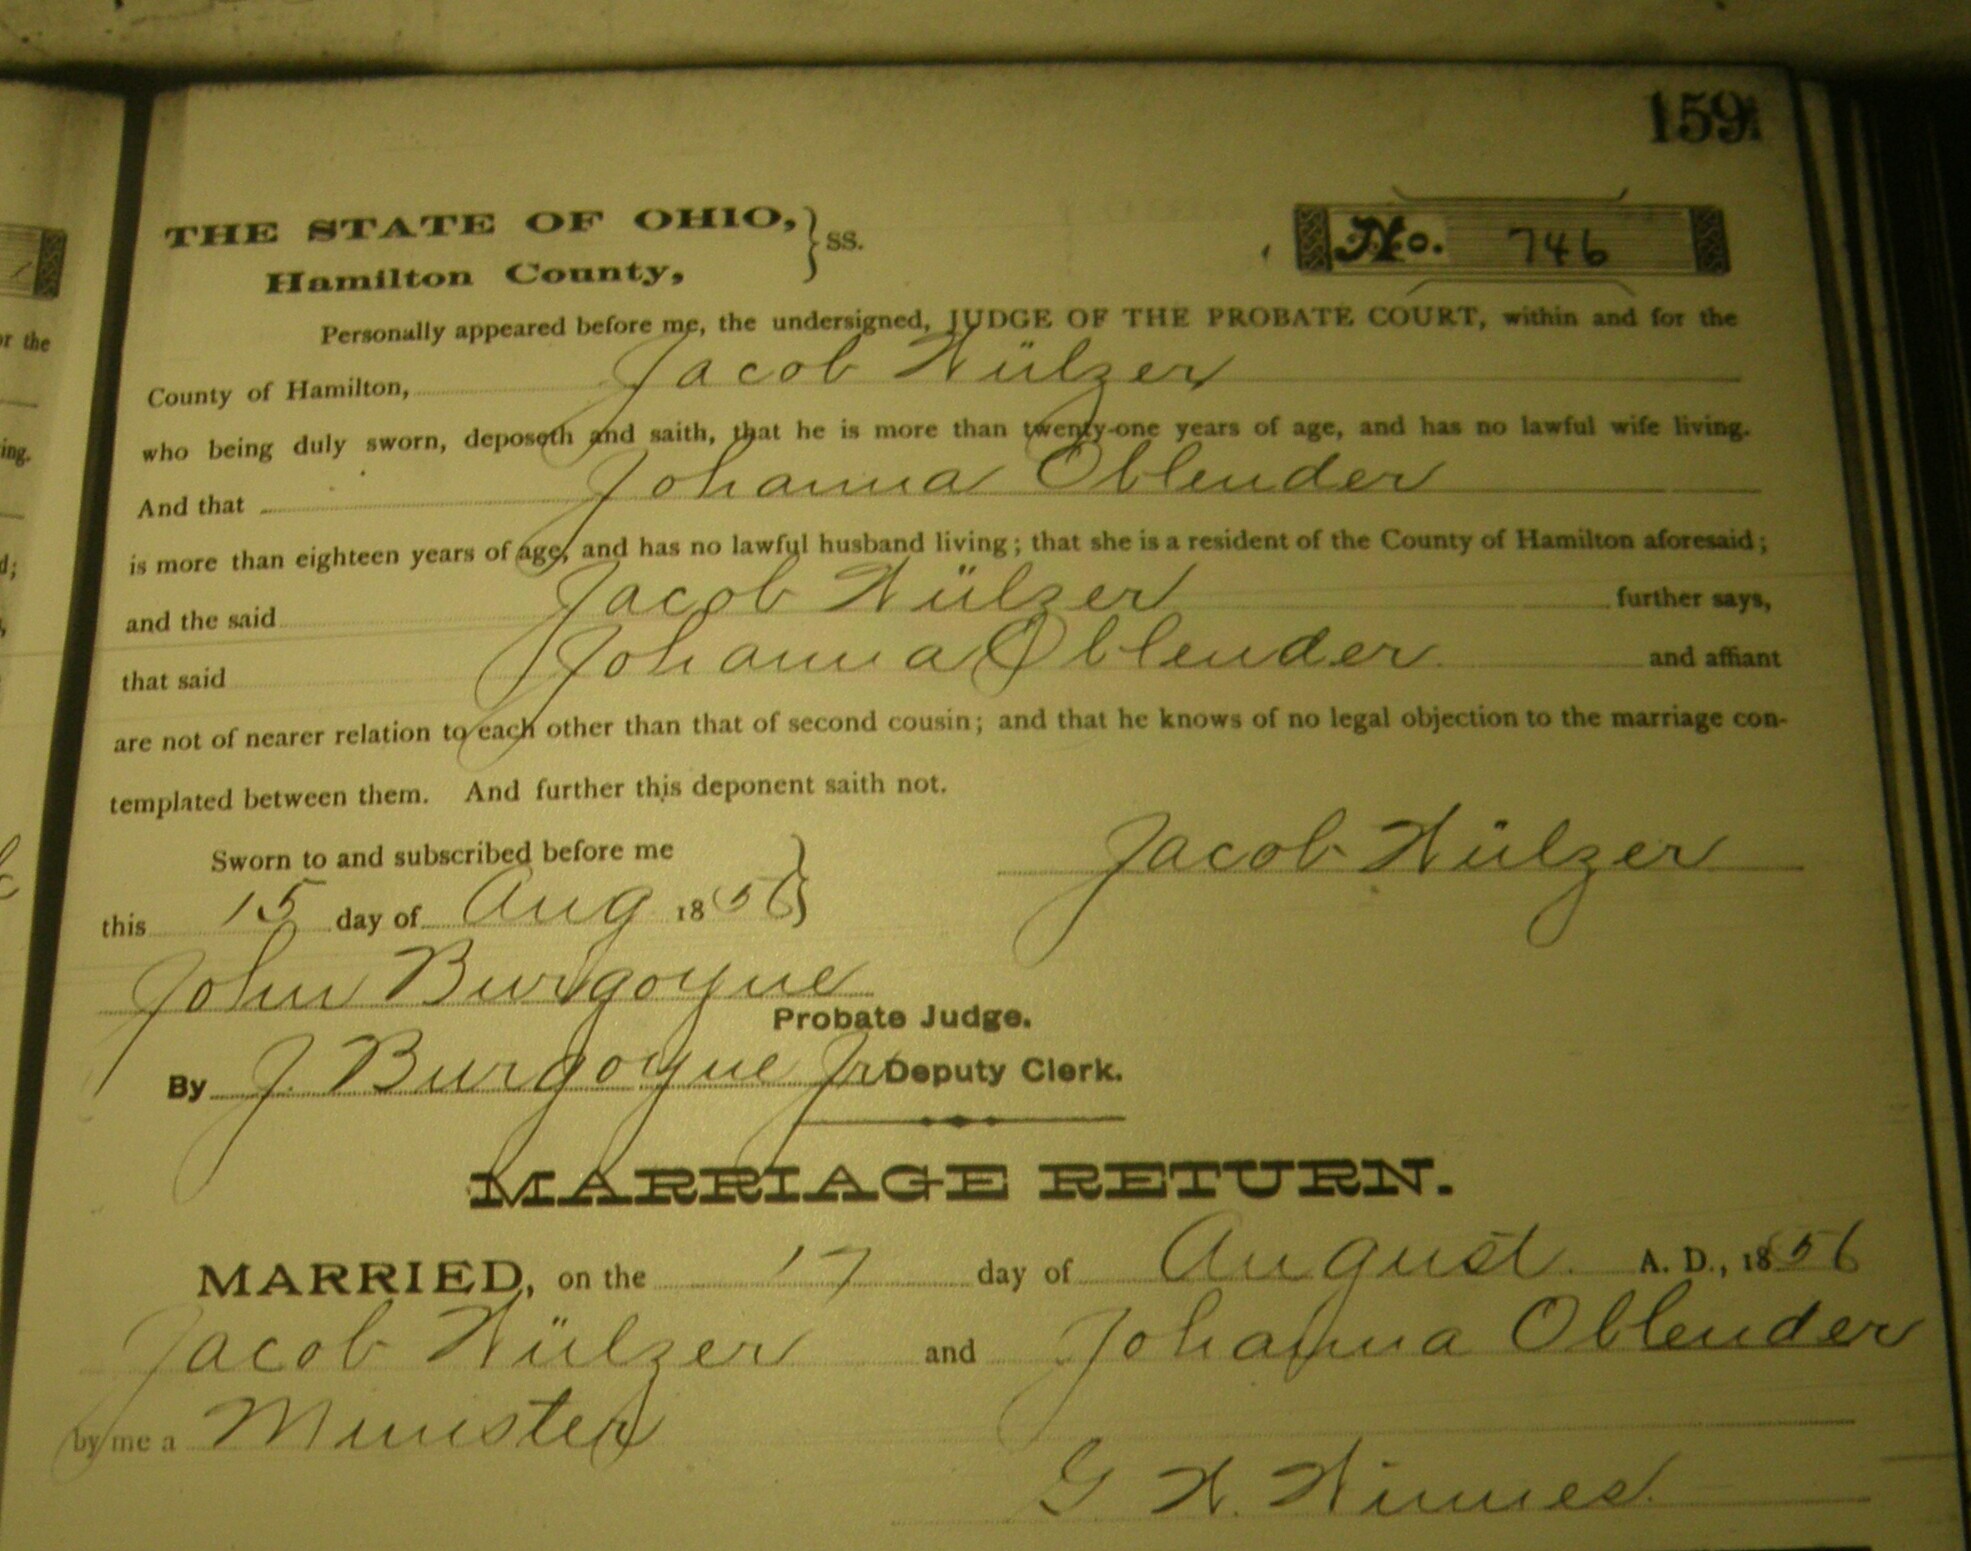 159
THE STATE OF OHIO, } ss.
Hamilton County,
No. 746
Personally appeared before me, the undersigned, JUDGE OF THE PROBATE COURT, within and for the
County of Hamilton, Jacob Wülzer
who being duly sworn, deposeth and saith, that he is more than twenty-one years of age, and has no lawful wife living.
And that Johanna Oblender
is more than eighteen years of age, and has no lawful husband living; that she is a resident of the County of Hamilton aforesaid;
and the said Jacob Wülzer further says,
that said Johanna Oblender and affiant
are not of nearer relation to each other than that of second cousin; and that he knows of no legal objection to the marriage con-
templated between them. And further this deponent saith not.
Sworn to and subscribed before me } Jacob Wülzer
this 15 day of Aug 1856
John Burgoyne
Probate Judge.
By J. Burgoyne Jr Deputy Clerk.
MARRIAGE RETURN.
MARRIED, on the 17 day of August. A. D., 1856
Jacob Wülzer and Johanna Oblender
by me a Minister
G W.
or the
ing.
d;